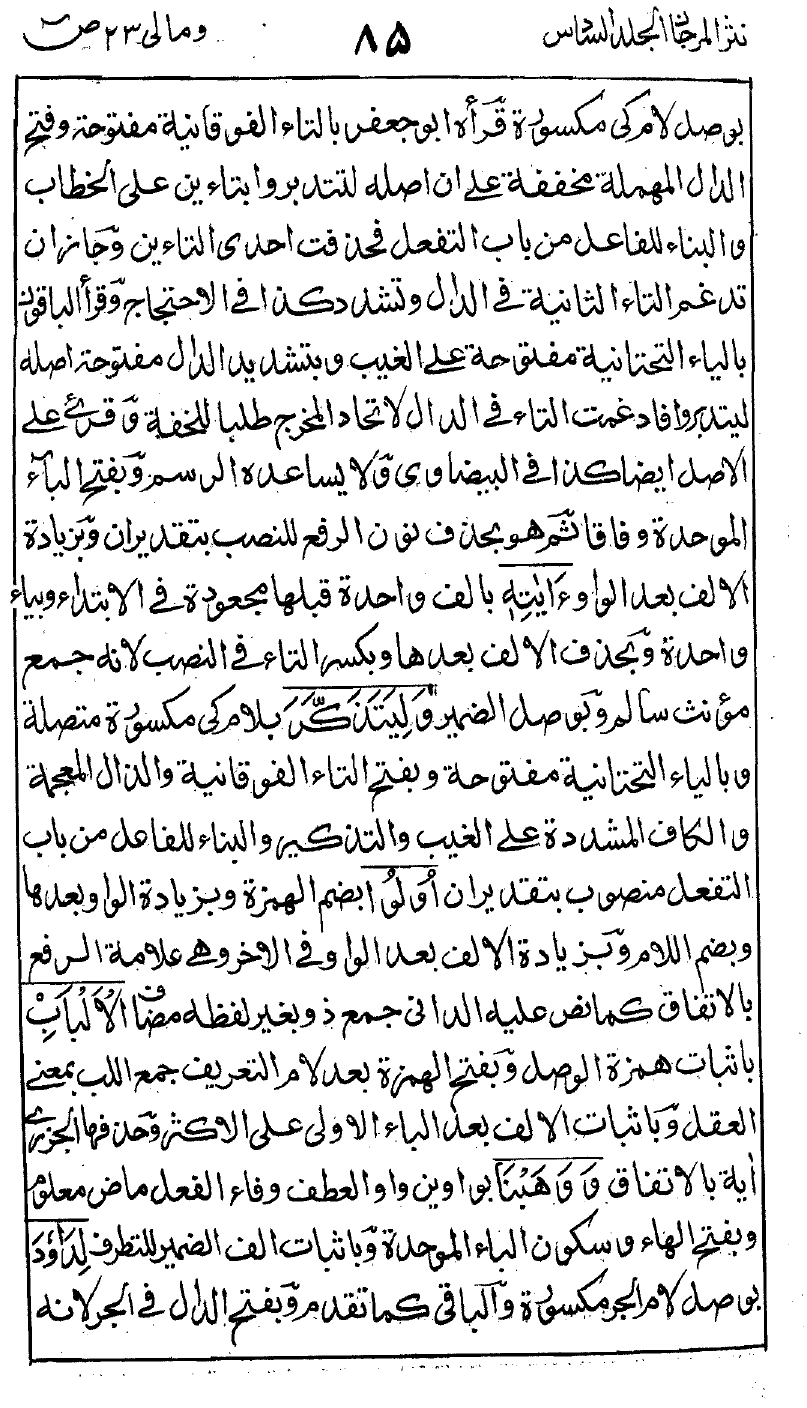 نثر المرجان الجلد السادس ٨٥ ومالى ٢٣ ص
بوصل لام كى مكسورة قرأه ابو جعفر بالتاء الفوقانية مفتوحة وفتح
الدال المهملة مخففة على ان اصله لتتدبروا بتاءين على الخطاب
والبناء للفاعل من باب التفعل فحذفت احدى التاءين وجاز ان
تدغم التاء الثانية فى الدال وتشدد كذا فى الاحتجاج وقرأ الباقون
بالياء التحتانية مفتوحة على الغيب وبتشديد الدال مفتوحة اصله
ليتدبروا فادغمت التاء فى الدال لاتحاد المخرج طلبا للخفة وقرئ على
الاصل ايضا كذا فى البيضاوى ولا يساعده الرسم وبفتح الباء
الموحدة وفاقا ثم هو بحذف نون الرفع للنصب بتقدير ان وبزيادة
الالف بعد الواو ءَايٰتِهٖ بالف واحدة قبلها مجعودة فى الابتداء وبياء
واحدة وبحذف الالف بعدها وبكسر التاء فى النصب لانه جمع
مؤنث سالم وبوصل الضمير وَلِيَتَذَكَّرَ بلام كى مكسورة متصلة
وبالياء التحتانية مفتوحة وبفتح التاء الفوقانية والذال المعجمة
والكاف المشددة على الغيب والتذكير والبناء للفاعل من باب
التفعل منصوب بتقدير ان اُولُوا بضم الهمزة وبزيادة الواو بعدها
وبضم اللام وبزيادة الالف بعد الواو فى الاخر وهى علامة الرفع
بالاتفاق كما نص عليه الدانى جمع ذو بغير لفظه مضاف الْاَلْبَابِ
باثبات همزة الوصل وبفتح الهمزة بعد لام التعريف جمع اللب بمعنى
العقل وباثبات الالف بعد الباء الاولى على الاكثر وحذفها الجزرى
اٰية بالاتفاق وَوَهَبْنَا بواوين واو العطف وفاء الفعل ماض معلوم
وبفتح الهاء وسكون الباء الموحدة وباثبات الف الضمير للتطرف لِدَاوٗدَ
بوصل لام الجر مكسورة والباقى كما تقدم وبفتح الدال فى الجر لانه